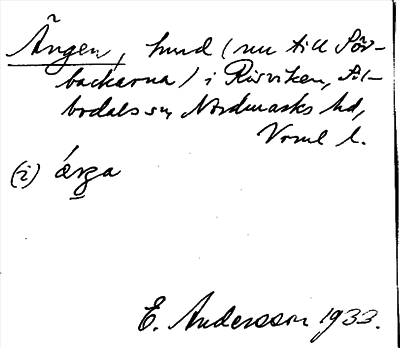 Ängen, hmd (nu till Söv-
backarna) i Risviken, Sil-
bodals sn, Nordmarks hd,
Vrml l.
(i) 
E. Andersson 1933.